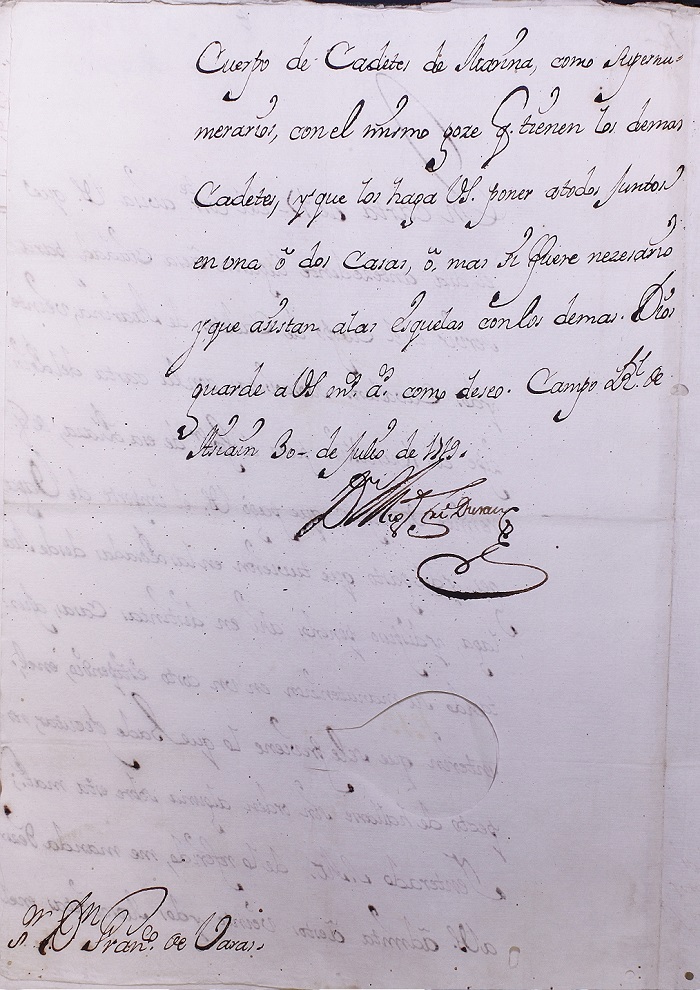 Cuerpo de Cadetes de Marina, como supernu-
merarios, con el mismo goze q. tienen los demas
Cadetes, y que los haga VS. poner a todos juntos
en una ô dos Casas, ô mas si fuere nezesario
y que asistan a las esquelas con los demas. Dios
guarde a VS ms. as. como deseo. Campo Rl. de
30 de Julio de 1719.
Dn Migl. frz Duran
Sr. Dn Franco. de Varas.